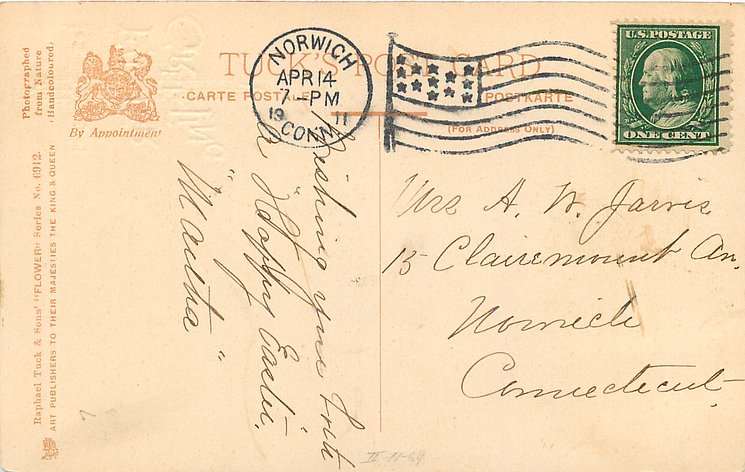 TUCK'S POST CARD
CARTE POSTALE
POSTKARTE
(FOR ADDRESS ONLY)
By Appointment
Photographed
from Nature
Handcoloured.
Raphael Tuck & Sons' "FLOWER" Series No. 6912.
ART PUBLISHERS TO THEIR MAJESTIES THE KING & QUEEN
NORWICH
APR 14
7-PM
19 11
CONN.
U.S. POSTAGE
ONE CENT
Wishing you both
a "Happy Easter."
"Martha"
Mrs A. W. Jarvis
15 Clairemount Av.
Norwich
Connecticut
II-11-69